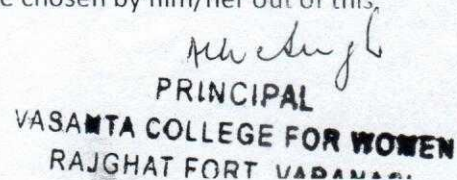 e chosen by him/her out of this
PRINCIPAL
VASANTA COLLEGE FOR WOMEN
RAJGHAT FORT, VARANASI